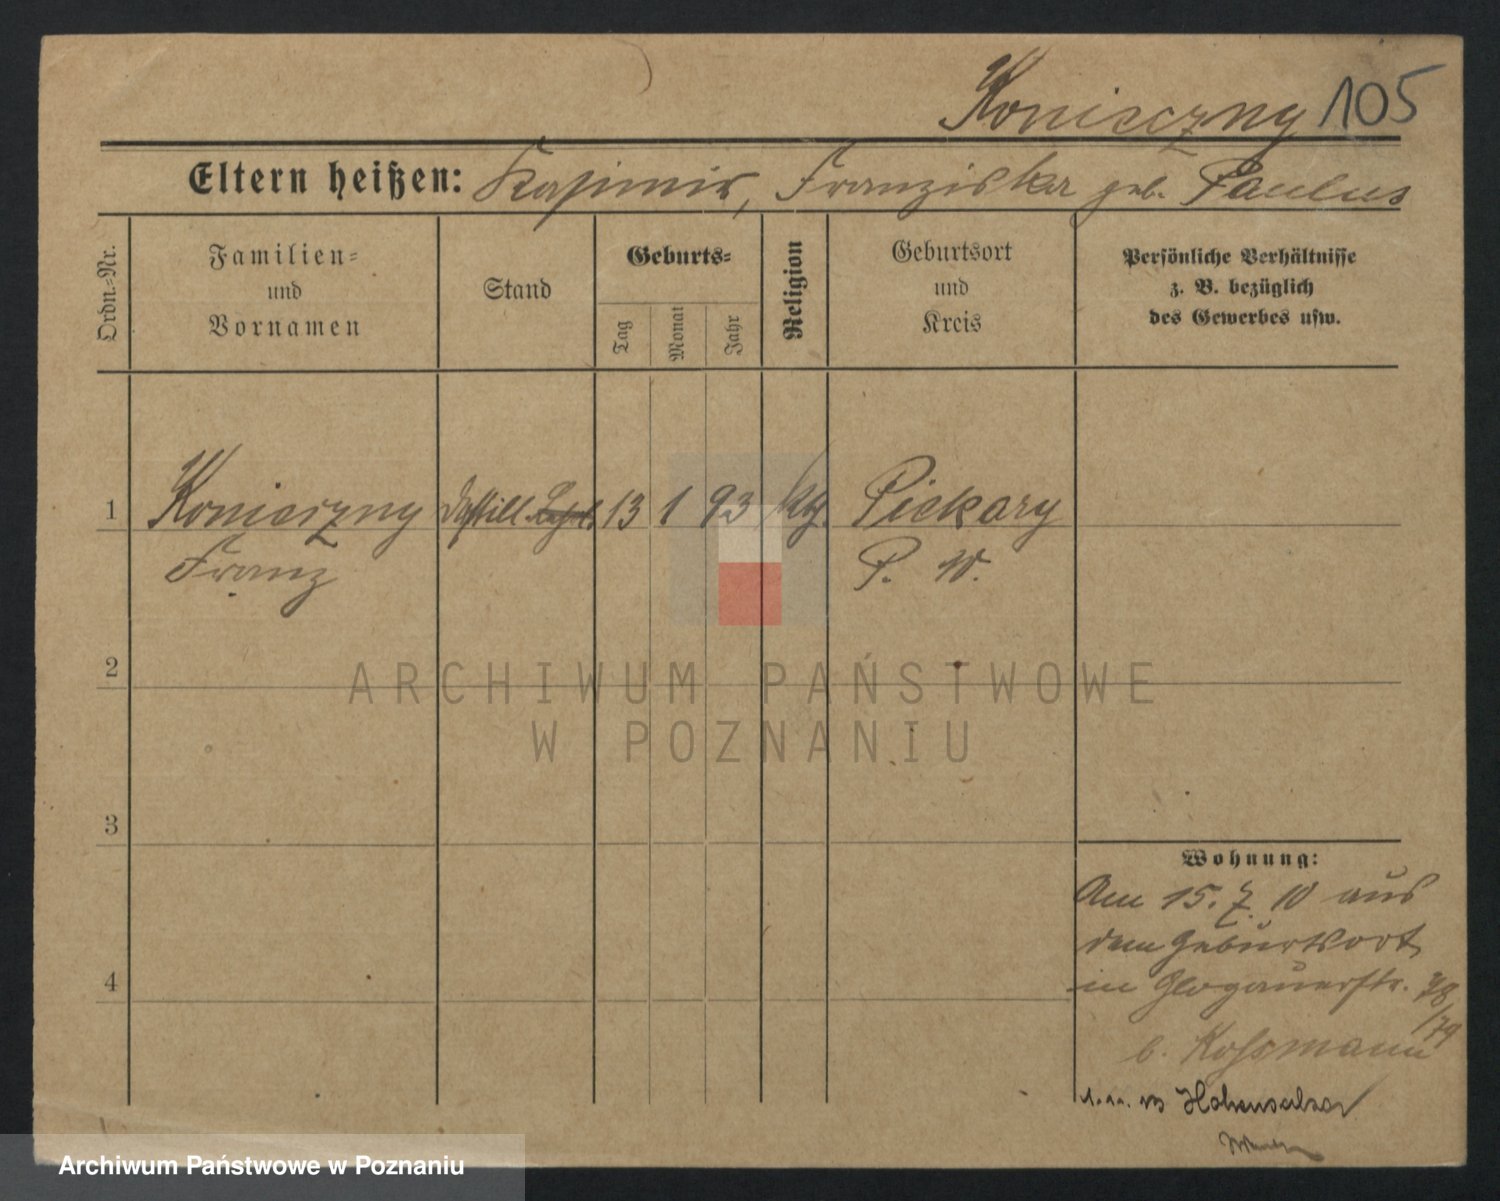 Konieczny 105
Eltern heißen: Kasimir, Franziska geb. Paulus
Ordn.-Nr.
Familien-
und
Vornamen
Stand
Geburts-
Tag
Monat
Jahr
Religion
Geburtsort
und
Kreis
Persönliche Verhältnisse
z. B. bezüglich
des Gewerbes usw.
1 Konieczny Destill. Lehrl. 13 1 93 ktl. Piekary
Franz P. W.
2
ARCHIWUM PAŃSTWOWE
W POZNANIU
3
Wohnung:
Am 15. 7. 10 aus
dem Geburtsort
4
in Glogauerstr. 78/79
b. Kossmann
1. 11. 13 Hohensalza
Archiwum Państwowe w Poznaniu